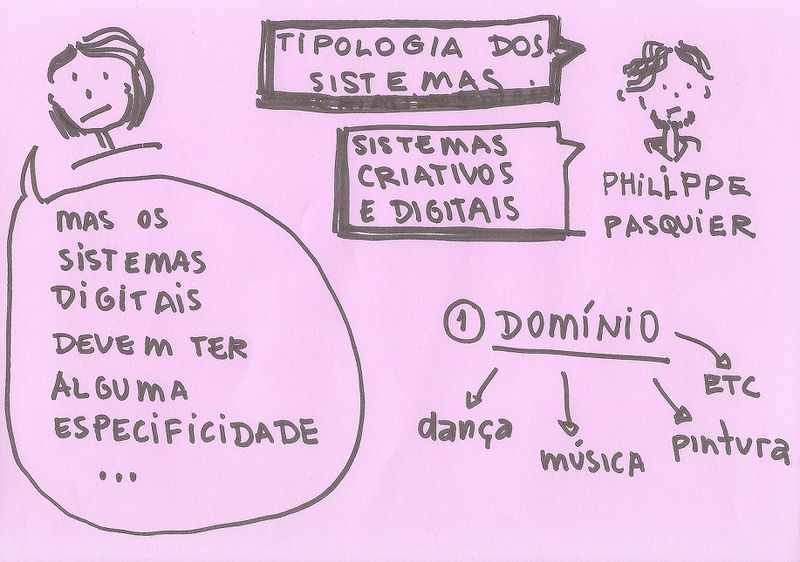 TIPOLOGIA DOS
SISTEMAS.
SISTEMAS
CRIATIVOS
E DIGITAIS
PHILIPPE
PASQUIER
MAS OS
SISTEMAS
DIGITAIS
DEVEM TER
ALGUMA
ESPECIFICIDADE
...
1 DOMÍNIO
ETC
dança
música
pintura